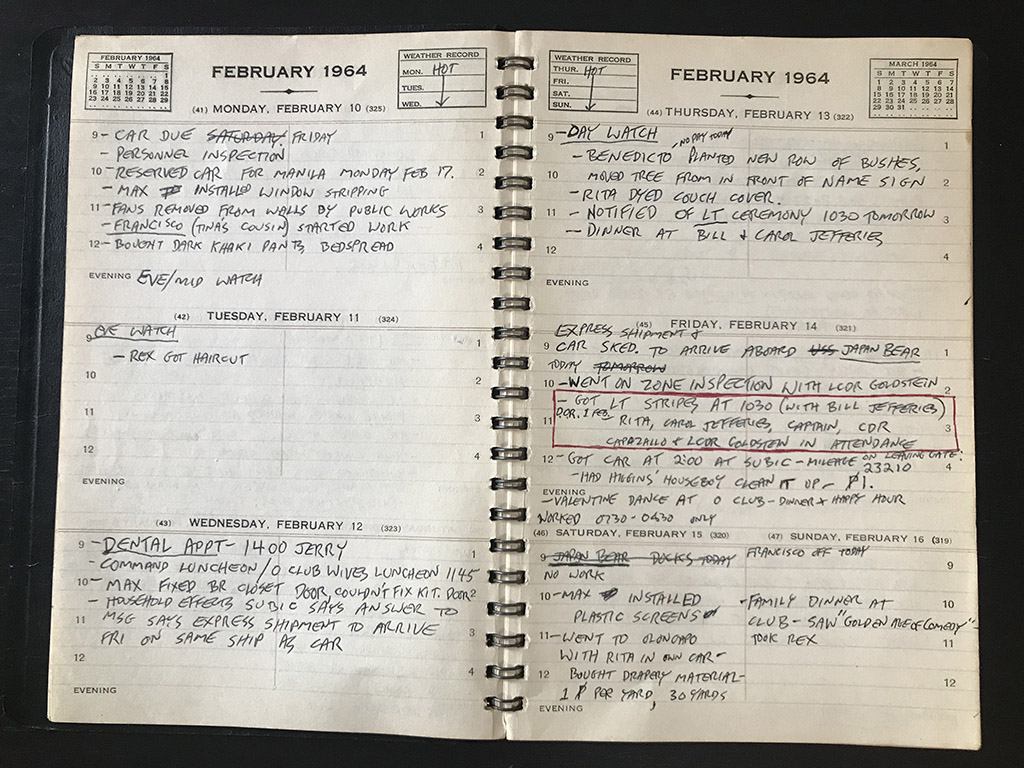 FEBRUARY 1964
S M T W T F S
1
2 3 4 5 6 7 8
9 10 11 12 13 14 15
16 17 18 19 20 21 22
23 24 25 26 27 28 29
FEBRUARY 1964
WEATHER RECORD
MON. HOT
TUES.
WED.
(41) MONDAY, FEBRUARY 10 (325)
9 - CAR DUE SATURDAY. FRIDAY 1
- PERSONNEL INSPECTION
10 - RESERVED CAR FOR MANILA MONDAY FEB 17. 2
- MAX INSTALLED WINDOW STRIPPING
11 - FANS REMOVED FROM WALLS BY PUBLIC WORKS 3
- FRANCISCO (TINA'S COUSIN) STARTED WORK
12 - BOUGHT DARK KHAKI PANTS, BEDSPREAD 4
EVENING EVE/MID WATCH
(42) TUESDAY, FEBRUARY 11 (324)
9 EVE WATCH 1
- REX GOT HAIRCUT
10 2
11 3
12 4
EVENING
(43) WEDNESDAY, FEBRUARY 12 (323)
9 - DENTAL APPT - 1400 JERRY 1
- COMMAND LUNCHEON/O CLUB WIVES LUNCHEON 1145
10 - MAX FIXED BR CLOSET DOOR, COULDN'T FIX KIT. DOOR 2
- HOUSEHOLD EFFECTS SUBIC SAYS ANSWER TO
11 MSG SAYS EXPRESS SHIPMENT TO ARRIVE 3
FRI ON SAME SHIP AS CAR
12 4
EVENING
WEATHER RECORD
THUR. HOT
FRI.
SAT.
SUN.
FEBRUARY 1964
MARCH 1964
S M T W T F S
1 2 3 4 5 6 7
8 9 10 11 12 13 14
15 16 17 18 19 20 21
22 23 24 25 26 27 28
29 30 31
(44) THURSDAY, FEBRUARY 13 (322)
9 - DAY WATCH 1
- BENEDICTO - NO PAY TODAY PLANTED NEW ROW OF BUSHES,
10 MOVED TREE FROM IN FRONT OF NAME SIGN 2
- RITA DYED COUCH COVER.
11 - NOTIFIED OF LT CEREMONY 1030 TOMORROW 3
- DINNER AT BILL & CAROL JEFFERIES
12 4
EVENING
(45) FRIDAY, FEBRUARY 14 (321)
EXPRESS SHIPMENT &
9 CAR SKED. TO ARRIVE ABOARD USS JAPAN BEAR 1
TODAY TOMORROW
10 - WENT ON ZONE INSPECTION WITH LCDR GOLDSTEIN 2
- GOT LT STRIPES AT 1030 (WITH BILL JEFFERIES)
D.O.R. 1 FEB.
11 RITA, CAROL JEFFERIES, CAPTAIN, CDR 3
CAPAZALLO & LCDR GOLDSTEIN IN ATTENDANCE
12 - GOT CAR AT 2:00 AT SUBIC - MILEAGE ON LEAVING GATE: 4
23210
- HAD HIGGINS' HOUSEBOY CLEAN IT UP - ₱1.
EVENING
- VALENTINE DANCE AT O CLUB - DINNER + HAPPY HOUR
WORKED 0730-0430 ONLY
(46) SATURDAY, FEBRUARY 15 (320)
9 JAPAN BEAR DOCKS TODAY
NO WORK
10 - MAX INSTALLED
PLASTIC SCREENS
11 - WENT TO OLONGAPO
WITH RITA IN OWN CAR -
12 BOUGHT DRAPERY MATERIAL -
1 ₱ PER YARD, 30 YARDS
EVENING
(47) SUNDAY, FEBRUARY 16 (319)
FRANCISCO OFF TODAY
9
- FAMILY DINNER AT 10
CLUB - SAW "GOLDEN AGE OF COMEDY" -
TOOK REX 11
12